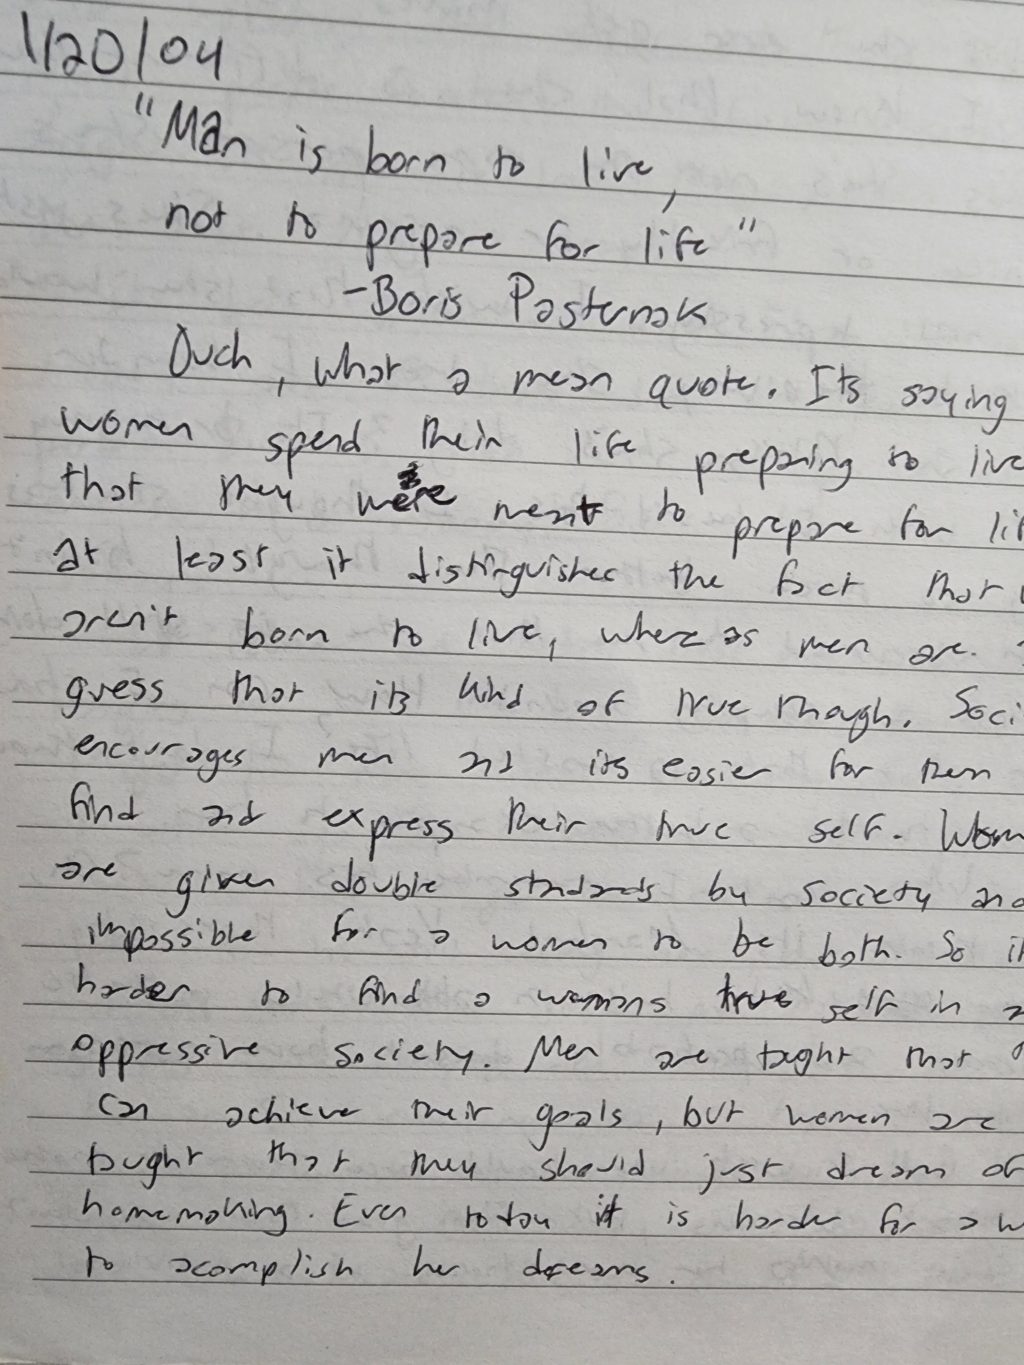 1/20/04
"Man is born to live,
not to prepare for life"
-Boris Pasternak
Ouch, what a mean quote. Its saying
women spend their life preparing to live
that they were ment to prepare for
at least it distinguishes the fact that
aren't born to live, where as men are.
guess that its kind of true though.
encourages men and its easier for them
find and express their true self.
are given double standards by society
impossible for a women to be both. So
harder to find a womans true self in
oppressive society. Men are taught that
can achieve their goals, but women are
taught that they should just dream of
homemaking. Even today it is harder for a
to acomplish her dreams.